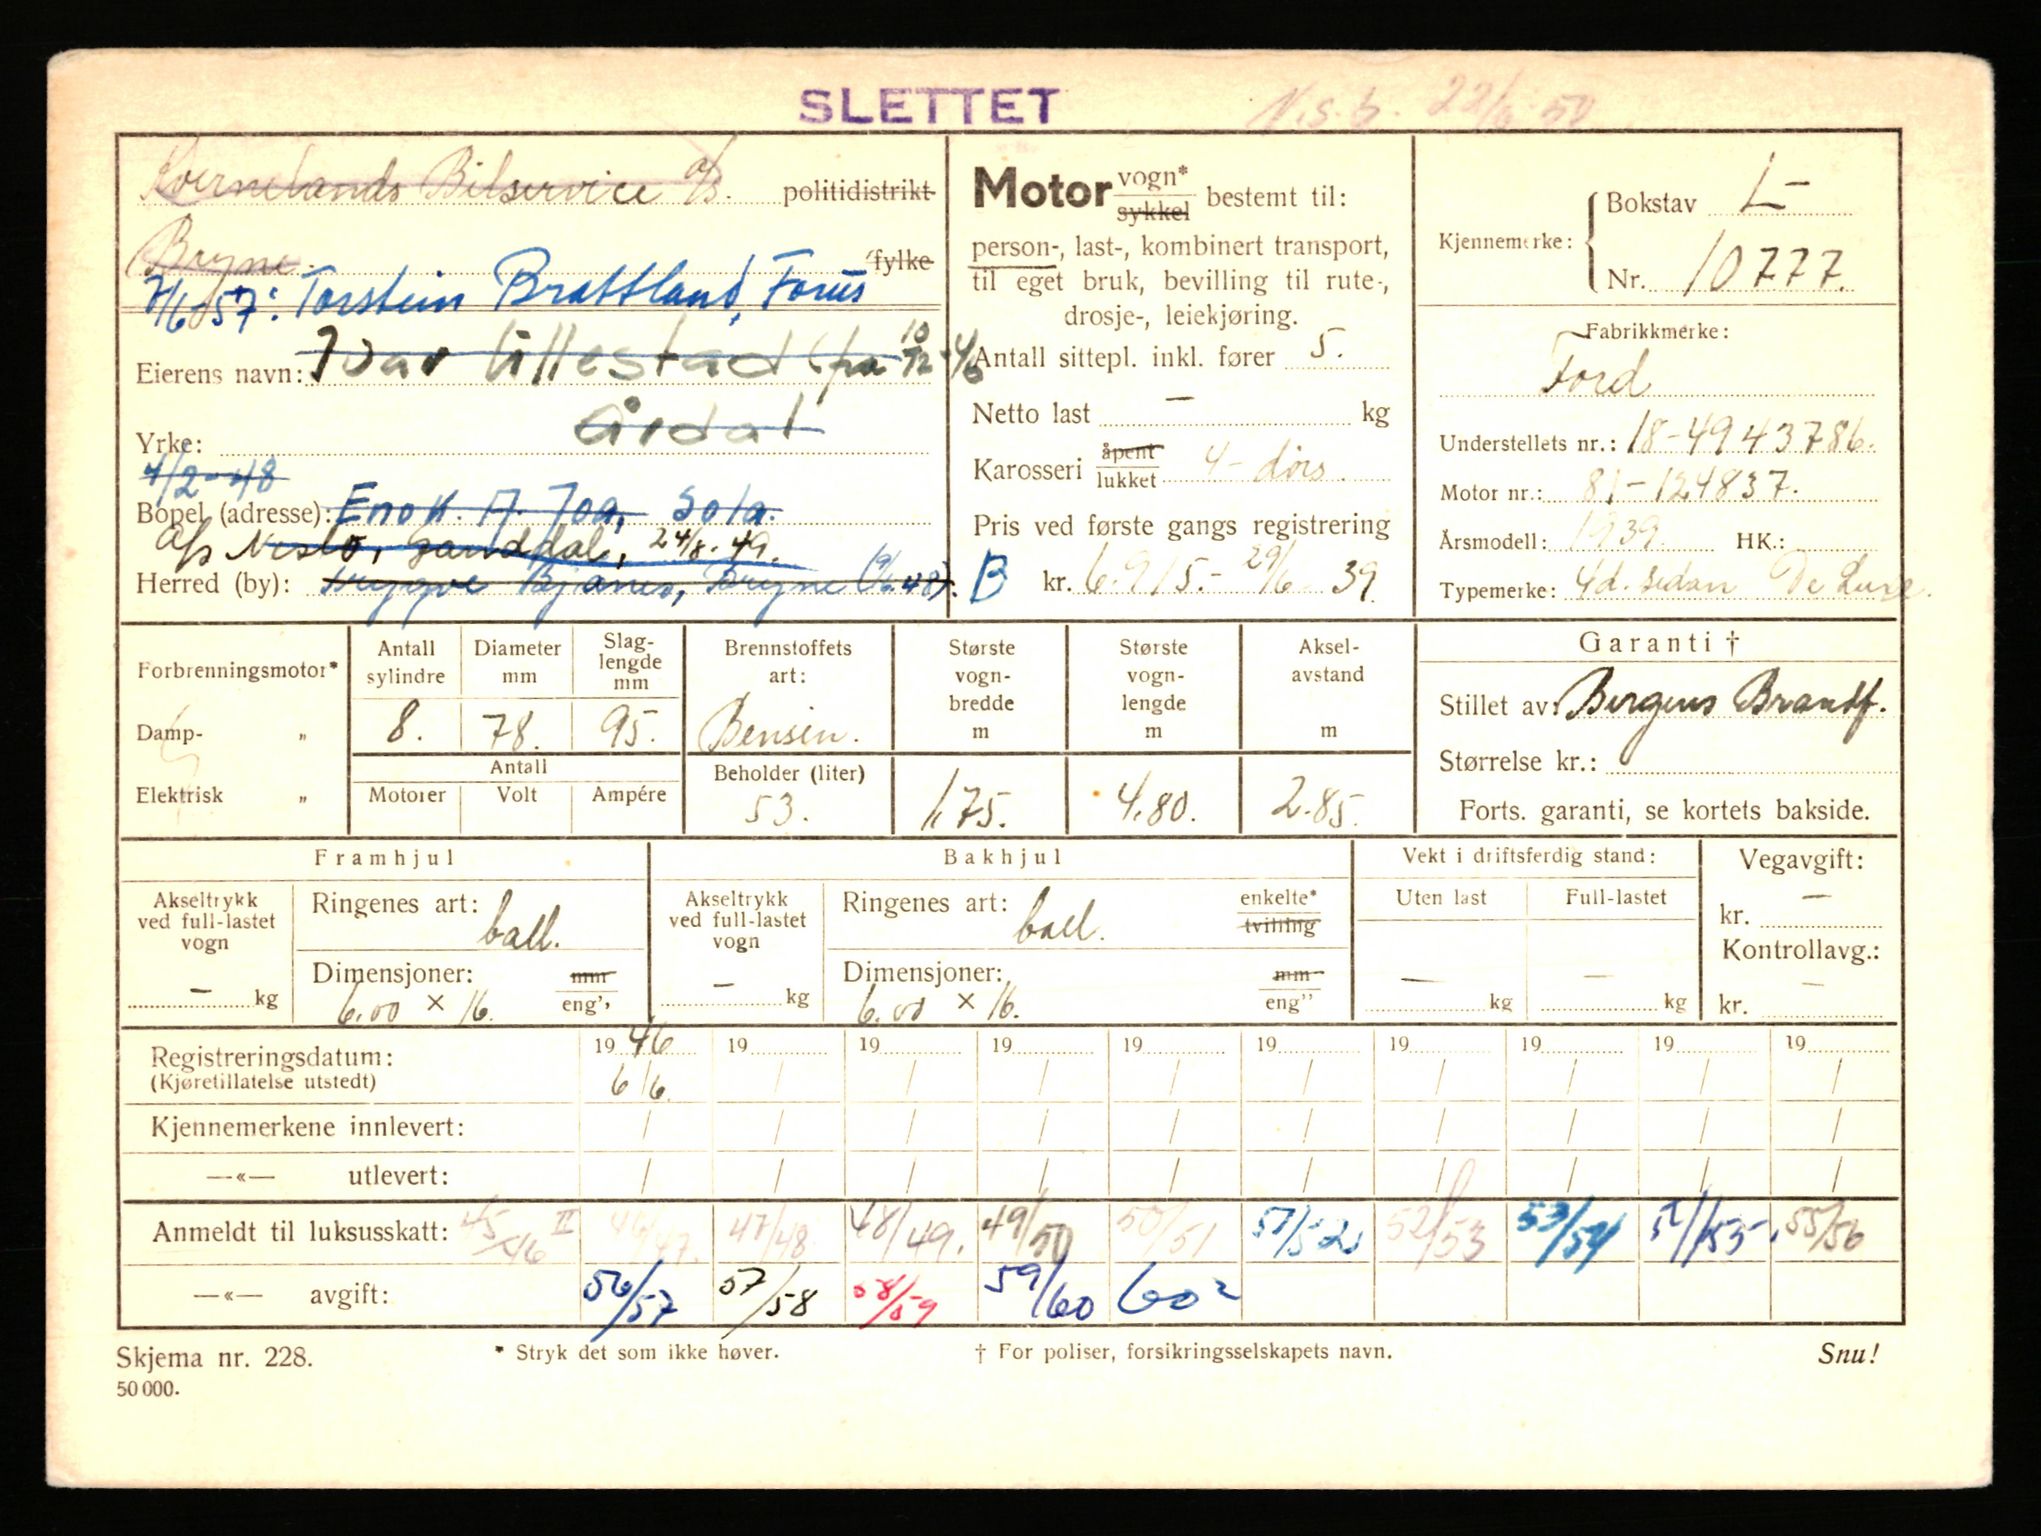 SLETTET
Kvernelands Bilservice A/S. politidistrikt
Bryne. fylke
7/6-57: Torstein Brattland, Forus
Eierens navn: Ivar Ullestad (fra 10/12-46
Yrke: Årdal
4/2-48
Bopel (adresse): Enok A. Joa, Sola.
A/S Neslo, Ganddal, 24/8-49.
Herred (by): Tryggve Bjanes, Bryne
Motor vogn* sykkel bestemt til:
person-, last-, kombinert transport,
til eget bruk, bevilling til rute-,
drosje-, leiekjøring.
Antall sittepl. inkl. fører 5.
Netto last — kg
Karosseri åpent lukket 4-dørs.
Pris ved første gangs registrering
B kr. 6.915.- 29/6 39
Kjennemerke: Bokstav L-
Nr. 10777.
Fabrikkmerke:
Ford
Understellets nr.: 18-4943786.
Motor nr.: 81-124837.
Årsmodell: 1939. HK.:
Typemerke: 4d. sedan De Luxe.
Forbrenningsmotor*
Damp- „
Elektrisk „
Antall sylindre 8.
Diameter mm 78.
Slaglengde mm 95.
Antall
Motorer Volt Ampére
Brennstoffets art: Bensin.
Beholder (liter) 53.
Største vognbredde m 1,75.
Største vognlengde m 4.80.
Akselavstand m 2.85.
Garanti †
Stillet av: Bergens Brandf.
Størrelse kr.:
Forts. garanti, se kortets bakside.
Framhjul
Akseltrykk ved full-lastet vogn — kg
Ringenes art: ball.
Dimensjoner: mm
6.00 × 16. eng''
Bakhjul
Akseltrykk ved full-lastet vogn — kg
Ringenes art: ball. enkelte* tvilling
Dimensjoner: mm
6.00 × 16. eng''
Vekt i driftsferdig stand:
Uten last — kg
Full-lastet — kg
Vegavgift:
kr. —
Kontrollavg.:
kr. —
Registreringsdatum: 1946 19 19 19 19 19 19 19 19 19
(Kjøretillatelse utstedt) 6/6. / / / / / / / / /
Kjennemerkene innlevert: / / / / / / / / / /
—«— utlevert: / / / / / / / / / /
Anmeldt til luksusskatt: 45/46 II 46/47. 47/48 48/49. 49/50 50/51 51/52. 52/53 53/54 54/55. 55/56
—«— avgift: 56/57 57/58 58/59 59/60 60²
Skjema nr. 228. * Stryk det som ikke høver. † For poliser, forsikringsselskapets navn. Snu!
50 000.